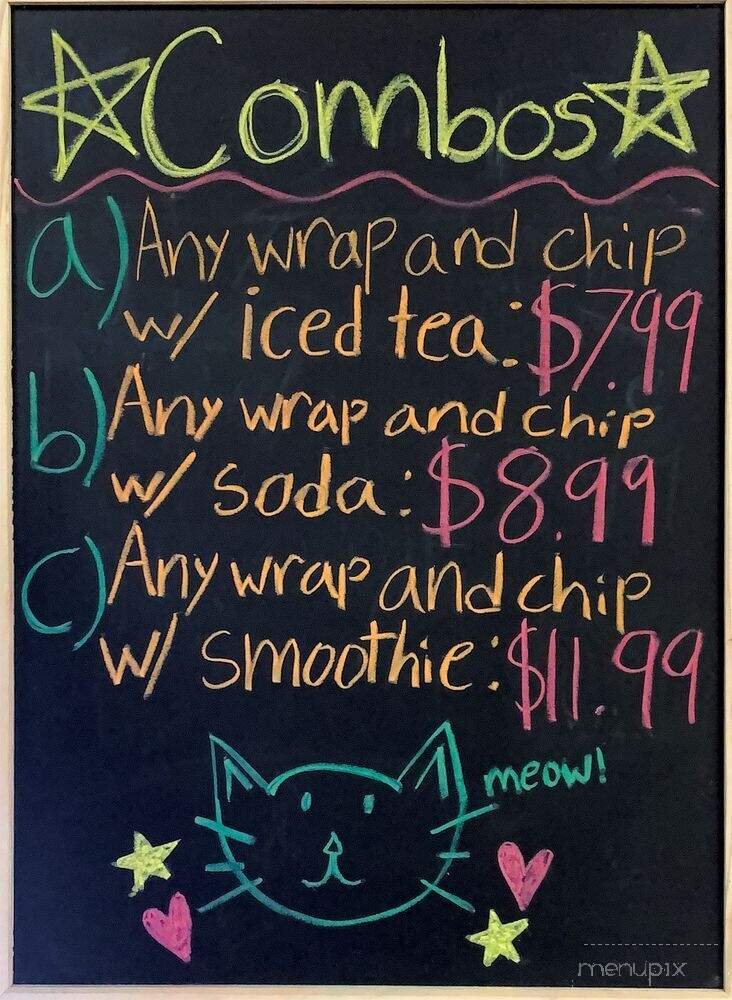 Combos
a) Any wrap and chip
w/ iced tea: $7.99
b) Any wrap and chip
w/ soda: $8.99
c) Any wrap and chip
w/ smoothie: $11.99
meow!
menupix